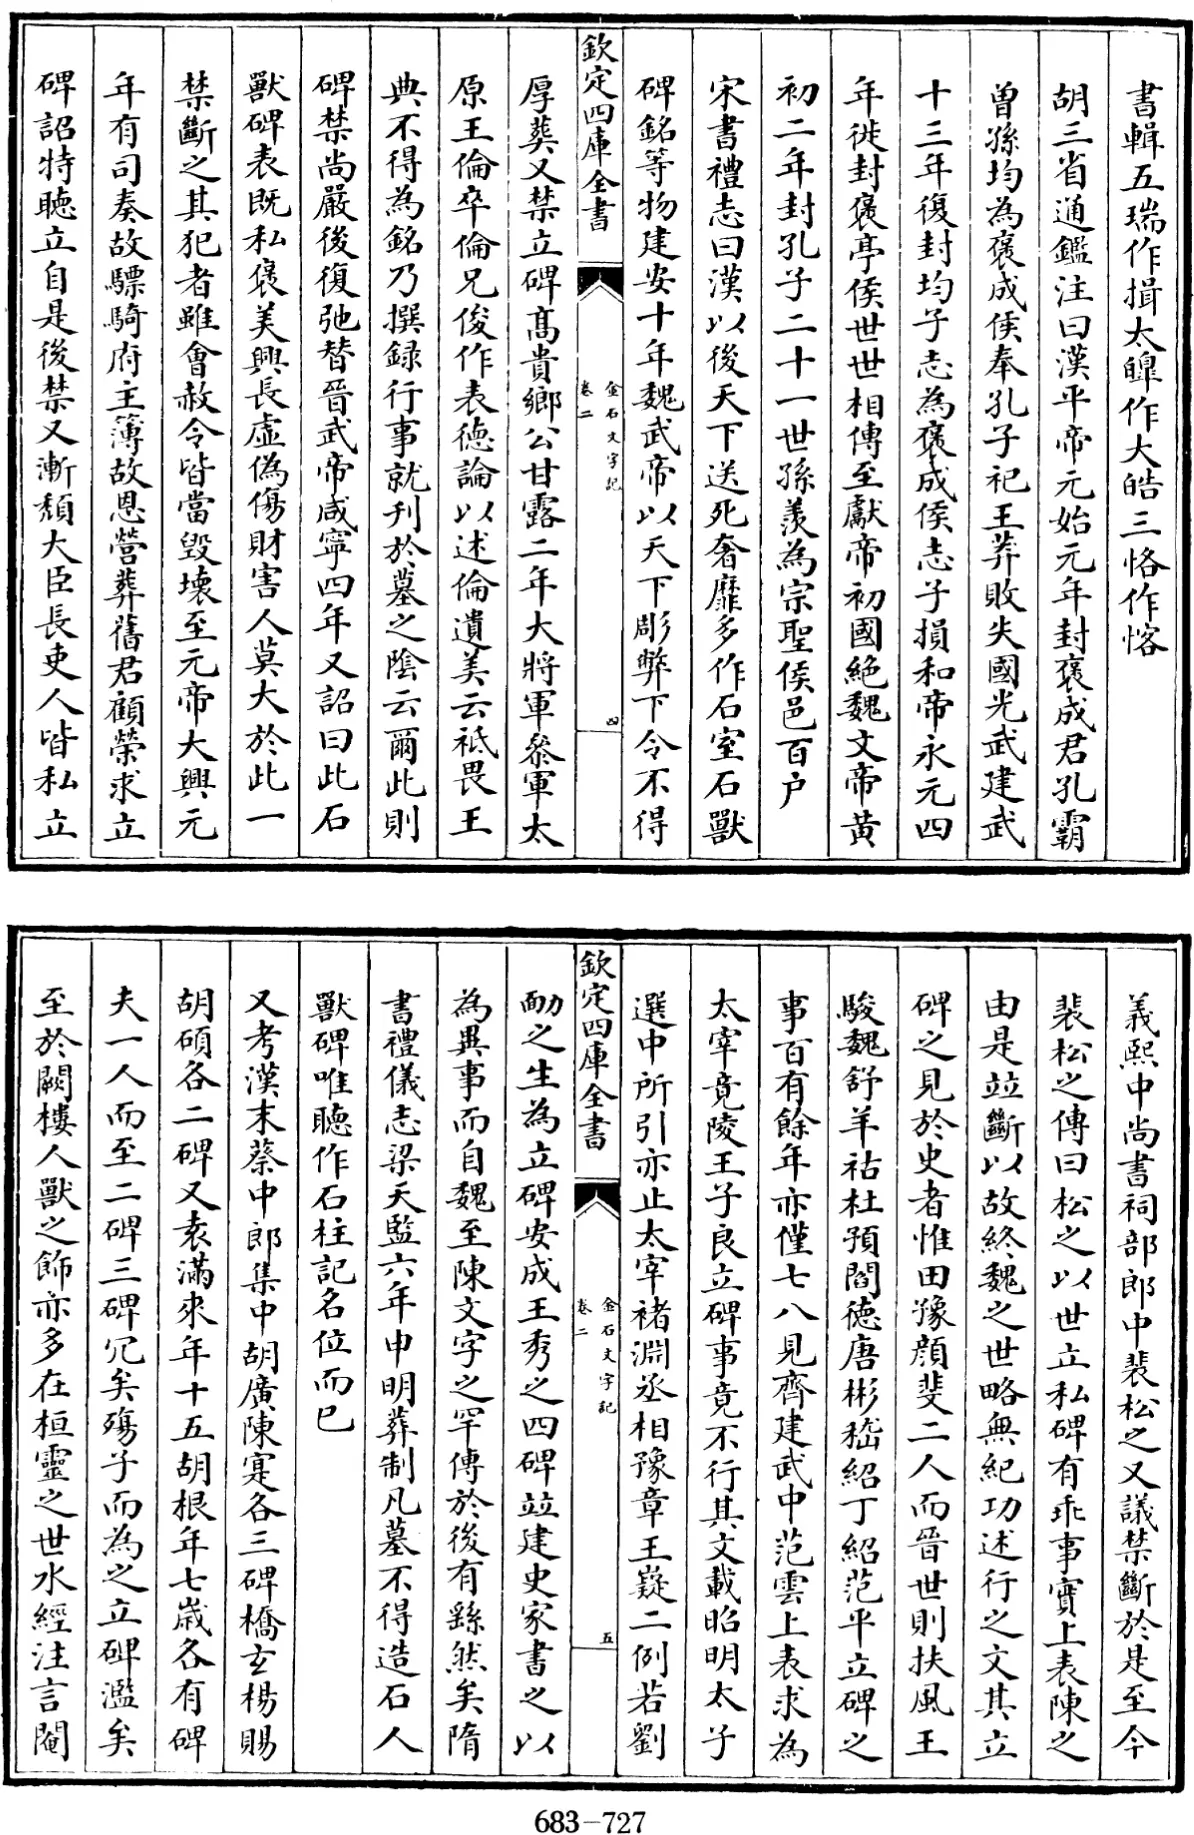 書輯五瑞作揖太皥作大皓三恪作愘
胡三省通鑑注曰漢平帝元始元年封褒成君孔霸
曾孫均為褒成侯奉孔子祀王莽敗失國光武建武
十三年復封均子志為褒成侯志子損和帝永元四
年徙封褒亭侯世世相傳至獻帝初國絶魏文帝黄
初二年封孔子二十一世孫羨為宗聖侯邑百户
宋書禮志曰漢以後天下送死奢靡多作石室石獸
碑銘等物建安十年魏武帝以天下彫弊下令不得
欽定四庫全書
金石文字記
卷二
四
厚葬又禁立碑髙貴鄉公甘露二年大將軍叅軍太
原王倫卒倫兄俊作表德論以述倫遺美云祗畏王
典不得為銘乃撰録行事就刋於墓之陰云爾此則
碑禁尚嚴後復弛替晉武帝咸寧四年又詔曰此石
獸碑表既私褒美興長虛偽傷財害人莫大於此一
禁斷之其犯者雖會赦令皆當毀壞至元帝大興元
年有司奏故驃騎府主簿故恩營葬舊君顧榮求立
碑詔特聽立自是後禁又漸頽大臣長吏人皆私立
義熙中尚書祠部郎中裴松之又議禁斷於是至今
裴松之傳曰松之以世立私碑有乖事實上表陳之
由是竝斷以故終魏之世略無紀功述行之文其立
碑之見於史者惟田豫顔斐二人而晉世則扶風王
駿魏舒羊祜杜預閻德唐彬嵇紹丁紹范平立碑之
事百有餘年亦僅七八見齊建武中范雲上表求為
太宰竟陵王子良立碑事竟不行其文載昭明太子
選中所引亦止太宰褚淵丞相豫章王嶷二例若劉
欽定四庫全書
金石文字記
卷二
五
勔之生為立碑安成王秀之四碑竝建史家書之以
為異事而自魏至陳文字之罕傳於後有繇然矣隋
書禮儀志梁天監六年申明葬制凡墓不得造石人
獸碑唯聽作石柱記名位而已
又考漢末蔡中郎集中胡廣陳寔各三碑橋玄楊賜
胡碩各二碑又袁滿來年十五胡根年七歲各有碑
夫一人而至二碑三碑冗矣殤子而為之立碑濫矣
至於闕樓人獸之飾亦多在桓靈之世水經注言閹
683-727